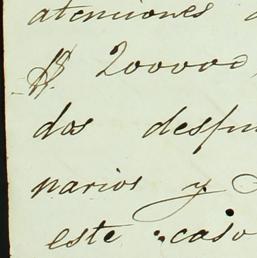 atenciones
$ 200000,
dos
narios y
este caso